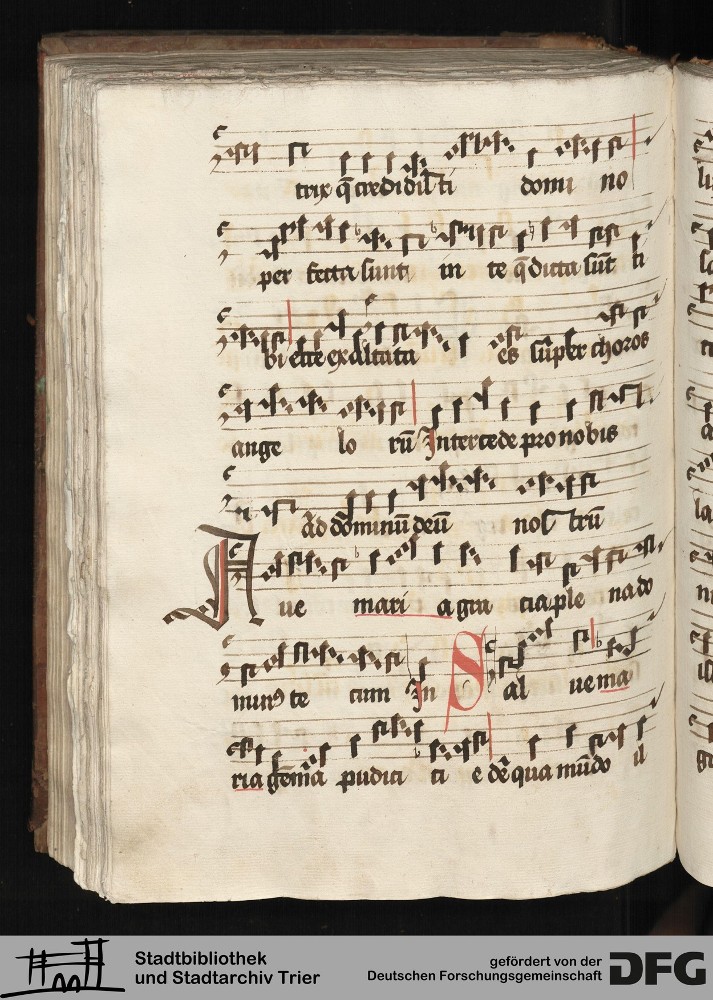 trix q̄ credidisti domi no
per fecta sunt in te q̄ dicta sūt ti
bi ecce exaltata es super choros
ange lo rū Intercede pro nobis
Ad dominū deū nostrū
Aue mari a gra cia ple na do
minus te cum In Sal ue ma
ria gēma pudici ti e de qua mūdo il
Stadtbibliothek
und Stadtarchiv Trier
gefördert von der
Deutschen Forschungsgemeinschaft
DFG